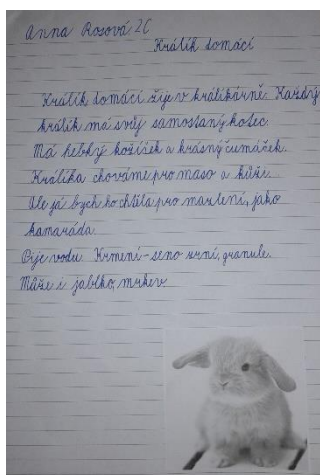 Anna Rosová 2C
Králík domácí
Králík domácí žije v králíkárně. Každý
králík má svůj samostaný kotec.
Má hebký kožíšek a krásný čumáček.
Králíka chováme pro maso a kůži.
Ale já bych ho chtěla pro mazlení, jako
kamaráda.
Pije vodu. Krmení - seno zrní, granule.
Může i jablko, mrkev